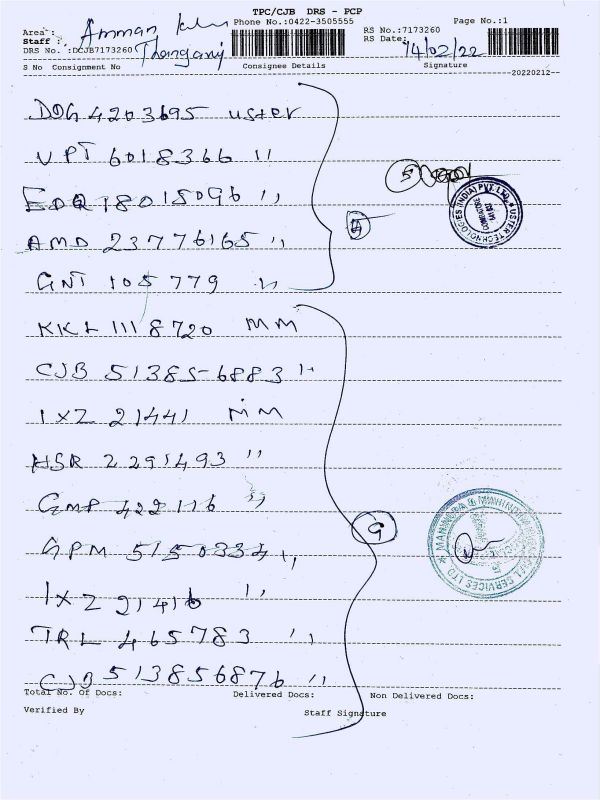 TPC/CJB DRS - PCP
Area : Amman
Phone No.:0422-3505555
RS No.:7173260
Page No.:1
Staff :
RS Date: 14/02/22
DRS No. :DCJB7173260
S No Consignment No Consignee Details Signature
--20220212--
DOG 4203695 uster
VPT 6018366 ''
EDQ 18015096 ''
AMD 23776165 ''
GNT 105779 ''
KKL 1118720 MM
CJB 513856883 ''
IXZ 21441 MM
HSR 2291493 ''
GMP 422116 ''
GPM 5150334 ''
IXZ 21416 ''
TRL 465783 ''
CJB 513856876 ''
5
USTER TECHNOLOGIES (INDIA) PVT. LTD.
COIMBATORE
9
Total No. Of Docs: Delivered Docs: Non Delivered Docs:
Verified By Staff Signature